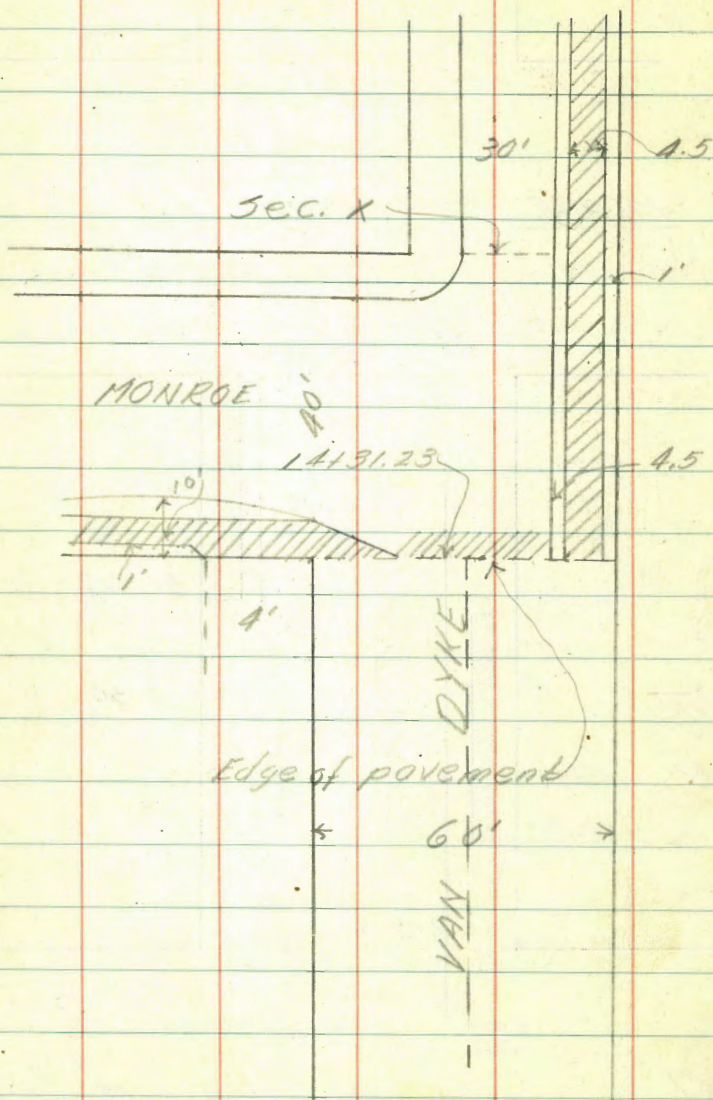 30'
4.5
Sec. X
1'
MONROE
40'
14+31.23
4.5
10'
1'
4'
VAN DYKE
Edge of pavement
60'